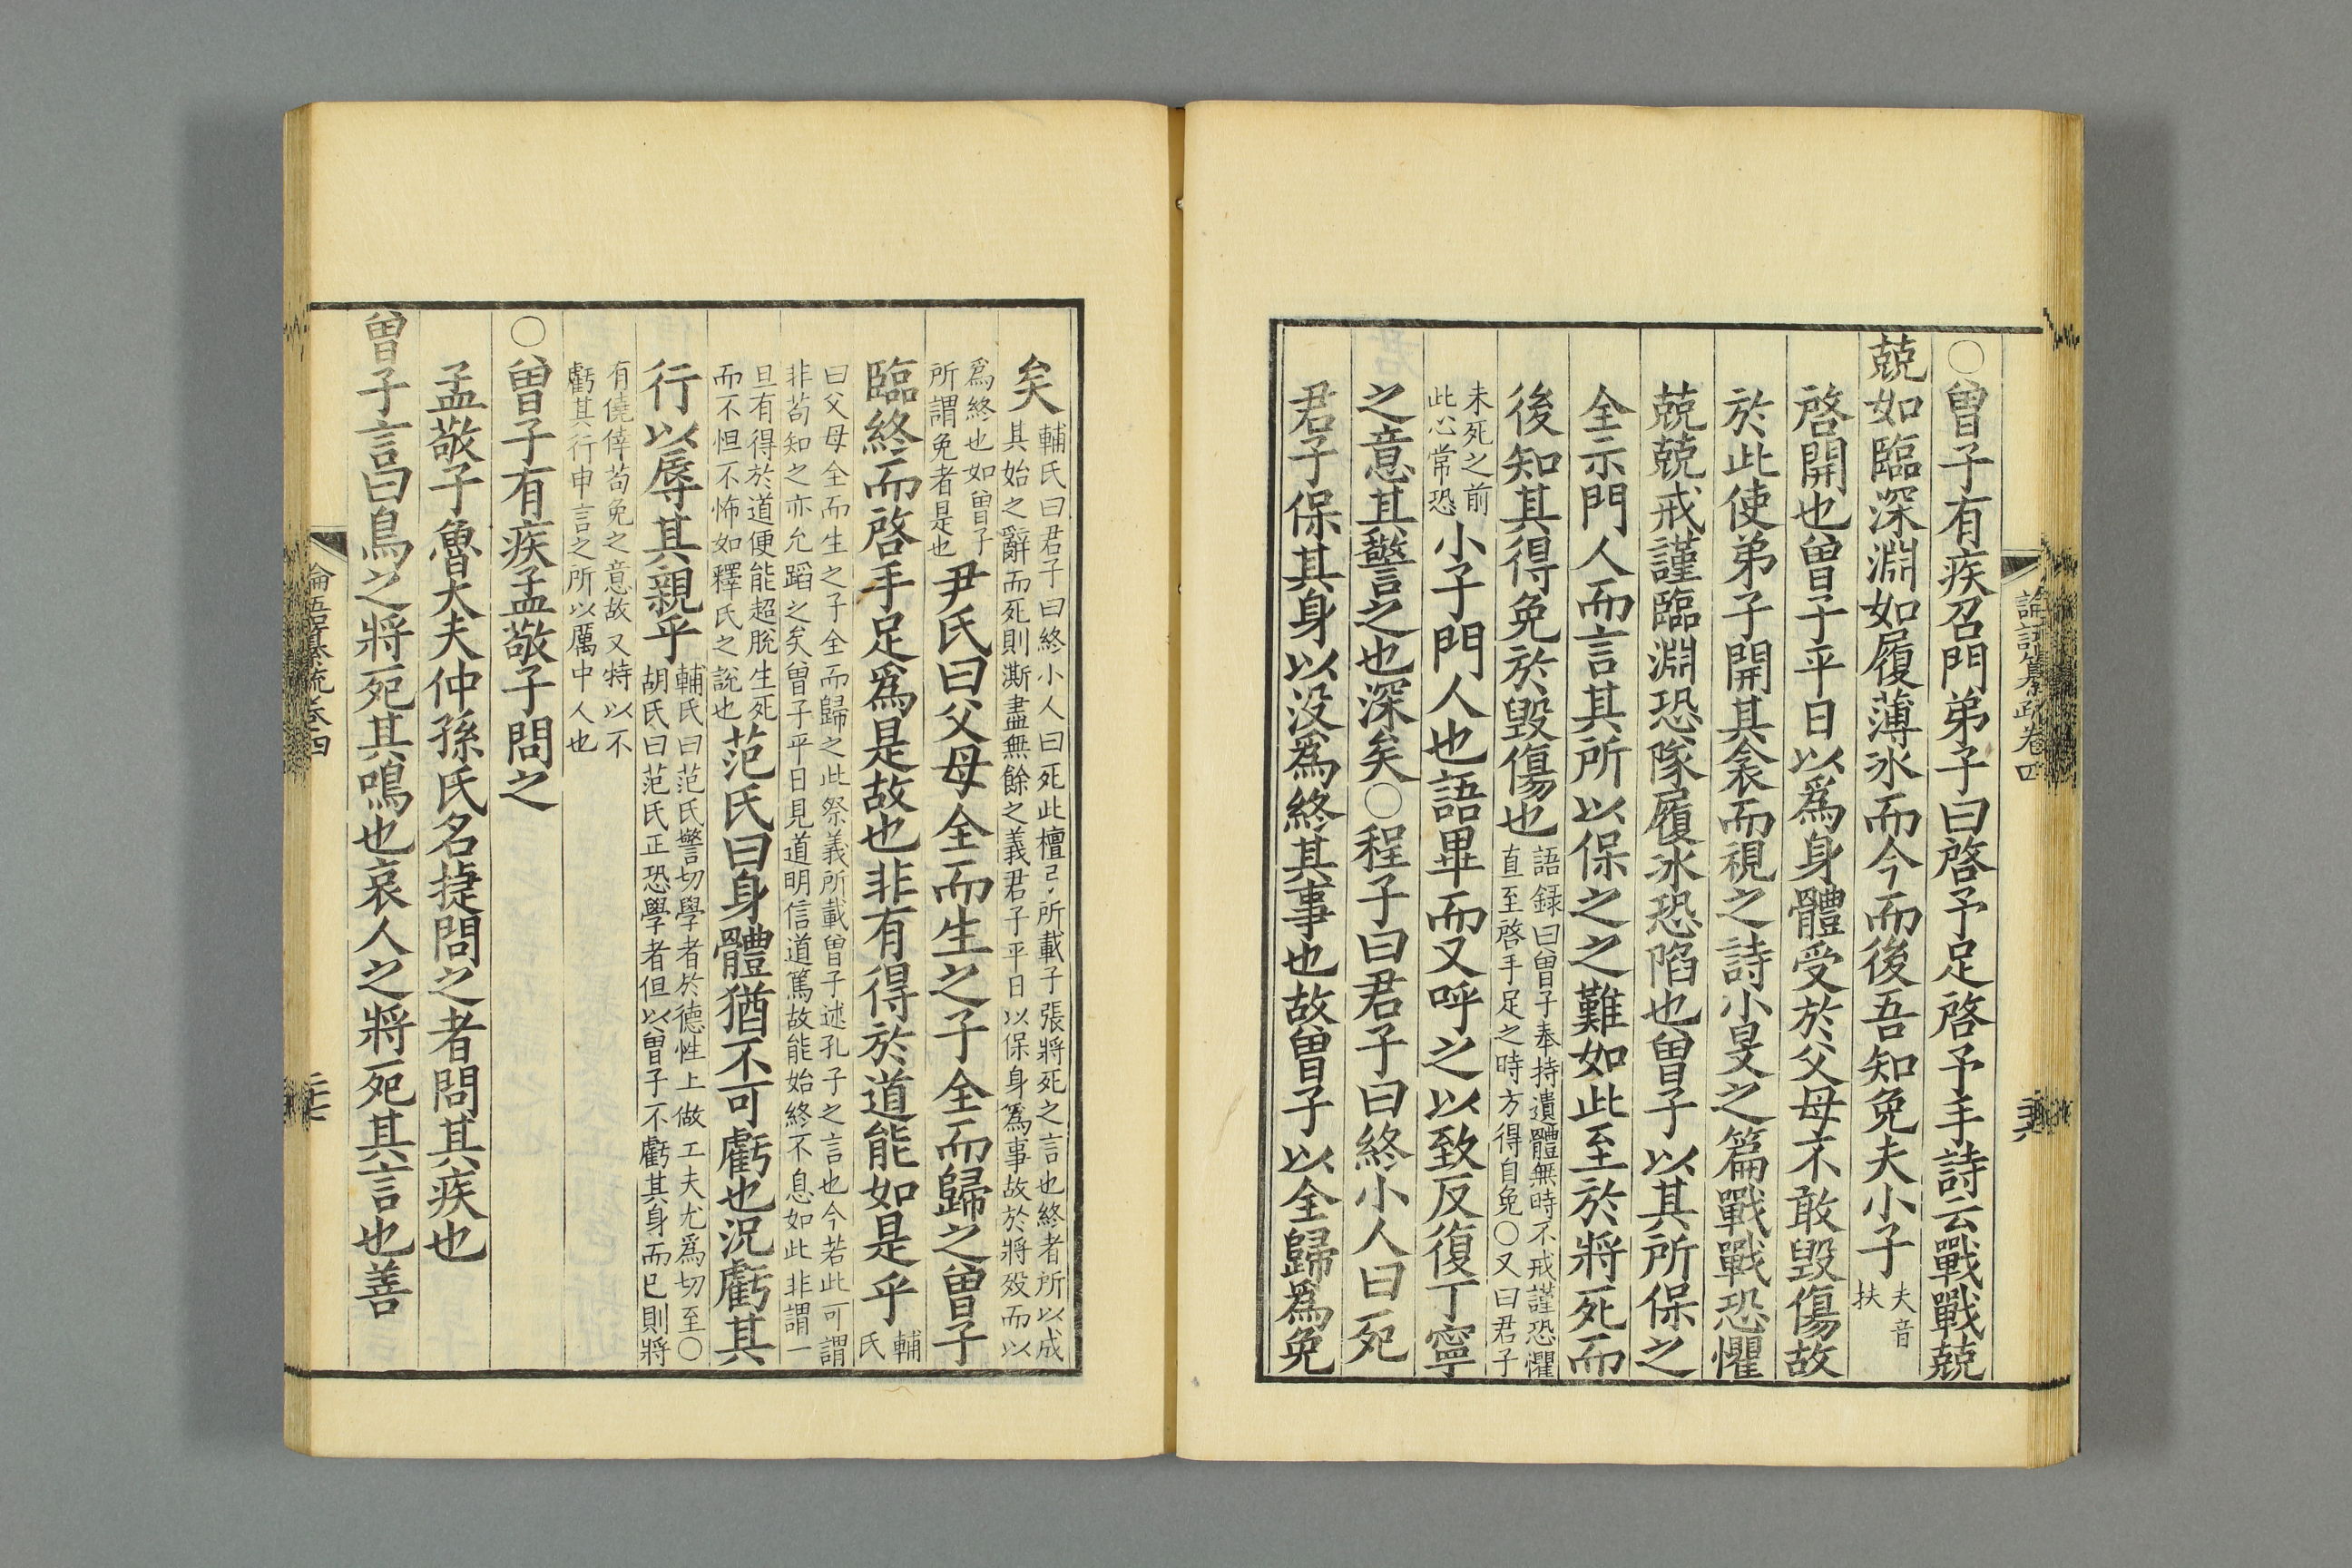 論語纂疏卷四
○曾子有疾召門弟子曰啓予足啓予手詩云戰戰兢
兢如臨深淵如履薄氷而今而後吾知免夫小子夫音
扶
啓開也曾子平日以爲身體受於父母不敢毀傷故
於此使弟子開其衾而視之詩小旻之篇戰戰恐懼
兢兢戒謹臨淵恐隊履氷恐陷也曾子以其所保之
全示門人而言其所以保之之難如此至於將死而
後知其得免於毀傷也語録曰曾子奉持遺體無時不戒謹恐懼
直至啓手足之時方得自免○又曰君子
未死之前
此心常恐小子門人也語畢而又呼之以致反復丁寧
之意其警之也深矣○程子曰君子曰終小人曰死
君子保其身以没爲終其事也故曾子以全歸爲免
矣輔氏曰君子曰終小人曰死此檀弓所載子張將死之言也終者所以成
其始之辭而死則澌盡無餘之義君子平日以保身爲事故於將殁而以
爲終也如曾子
所謂免者是也尹氏曰父母全而生之子全而歸之曾子
臨終而啓手足爲是故也非有得於道能如是乎輔
氏
曰父母全而生之子全而歸之此祭義所載曾子述孔子之言也今若此可謂
非苟知之亦允蹈之矣曾子平日見道明信道篤故能始終不息如此非謂一
旦有得於道便能超脫生死
而不怛不怖如釋氏之說也范氏曰身體猶不可虧也況虧其
行以辱其親乎輔氏曰范氏警切學者於德性上做工夫尤爲切至○
胡氏曰范氏正恐學者但以曾子不虧其身而已則將
有僥倖苟免之意故又特以不
虧其行申言之所以厲中人也
○曾子有疾孟敬子問之
孟敬子魯大夫仲孫氏名捷問之者問其疾也
曾子言曰鳥之將死其鳴也哀人之將死其言也善
論語纂疏卷四